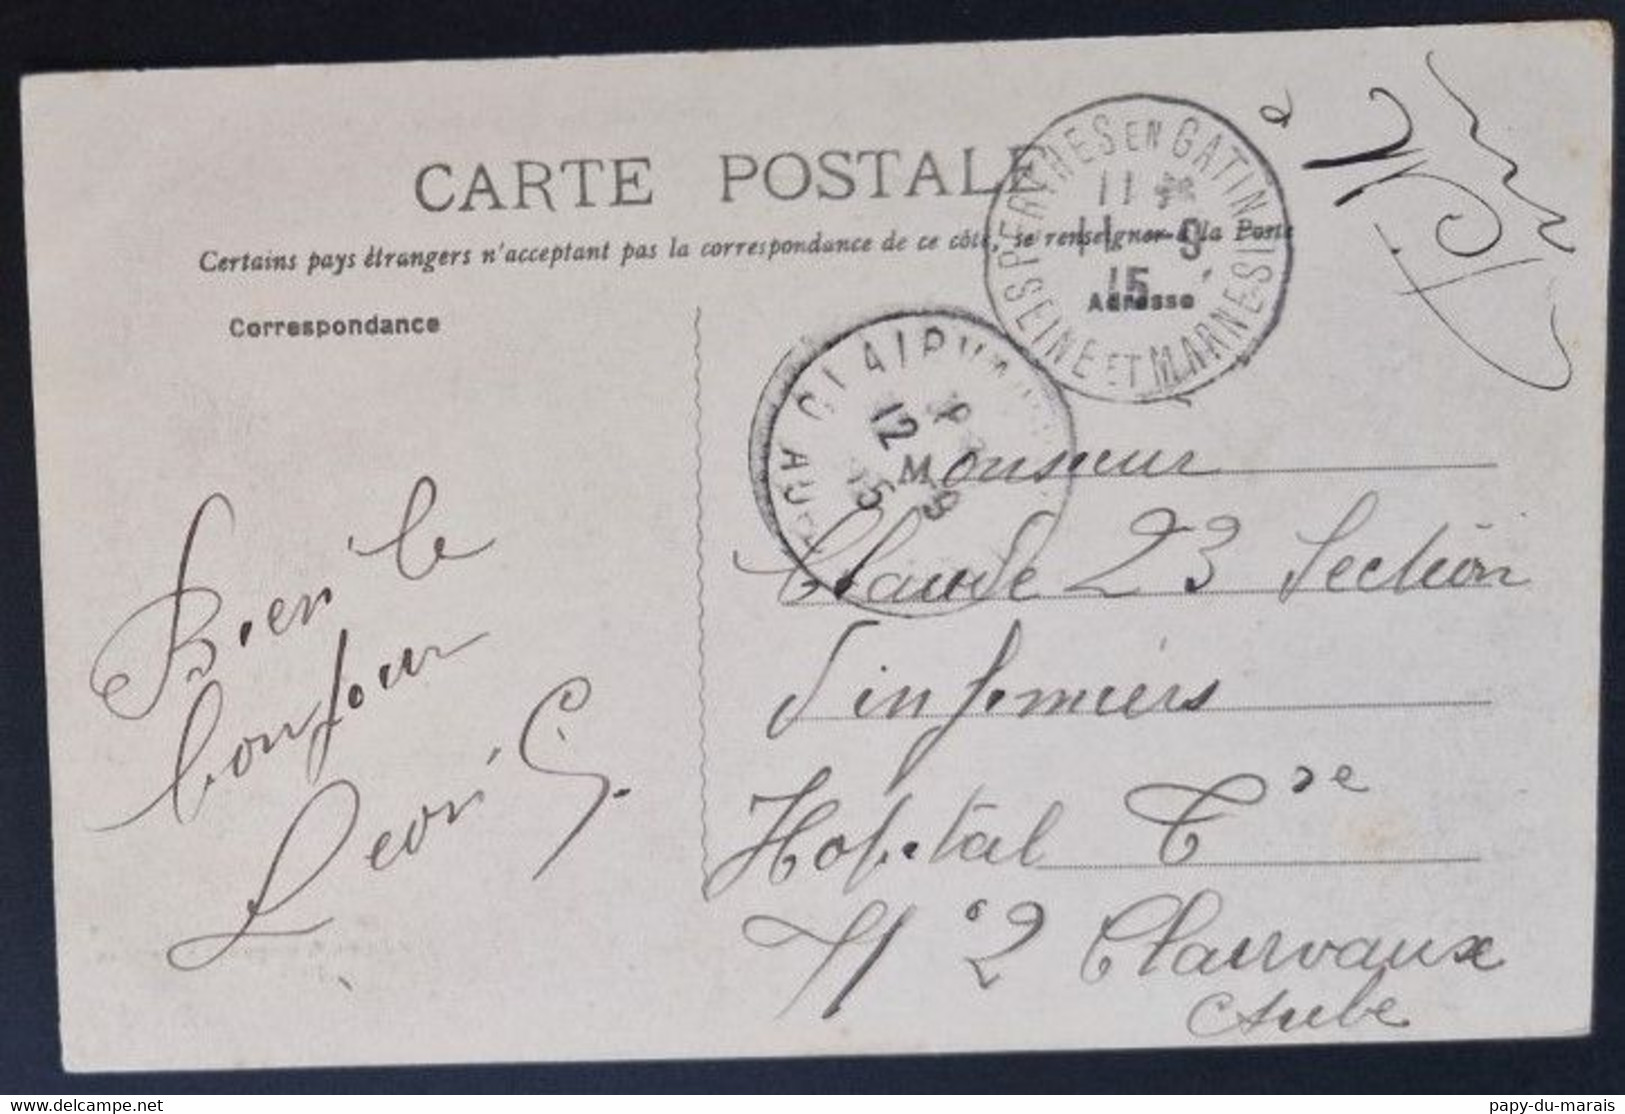 CARTE POSTALE
Certains pays étrangers n'acceptant pas la correspondance de ce côté, se renseigner à la Poste
Correspondance
Adresse
PERTHES EN GATINAIS
11
11 - 9
15
SEINE ET MARNE
CLAIRVAUX
12 9
15
AUBE
à
Bien le
bonjour
Léon G.
Monsieur
Claude 23 Section
d'infirmiers
Hopital Cre
N° 2 Clairvaux
Aube
www.delcampe.net
papy-du-marais